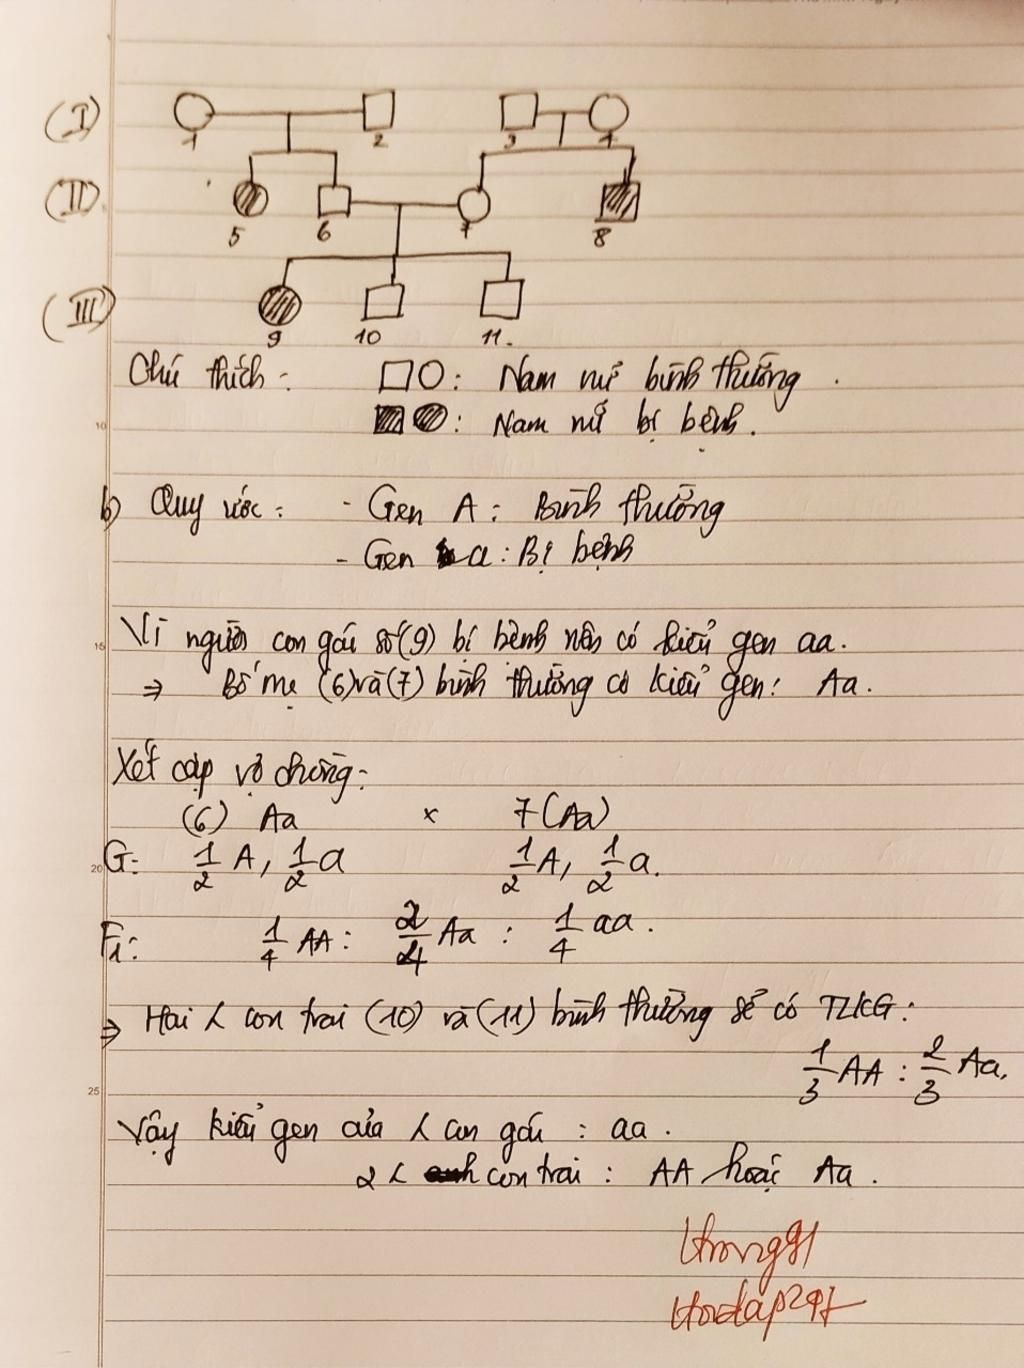 (I)
1 2 3 4
(II)
5 6 7 8
(III)
9 10 11.
Chú thích: □○: Nam nữ bình thường.
: Nam nữ bị bệnh.
b) Quy ước: - Gen A: Bình thường
- Gen a: Bị bệnh
Vì người con gái số (9) bị bệnh nên có kiểu gen aa.
⇒ Bố mẹ (6) và (7) bình thường có kiểu gen: Aa.
Xét cặp vợ chồng:
(6) Aa × 7(Aa)
G: 1/2 A, 1/2 a 1/2 A, 1/2 a.
F1: 1/4 AA: 2/4 Aa: 1/4 aa.
⇒ Hai con trai (10) và (11) bình thường sẽ có TLKG:
1/3 AA: 2/3 Aa.
Vậy kiểu gen của con gái: aa.
2 con trai: AA hoặc Aa.